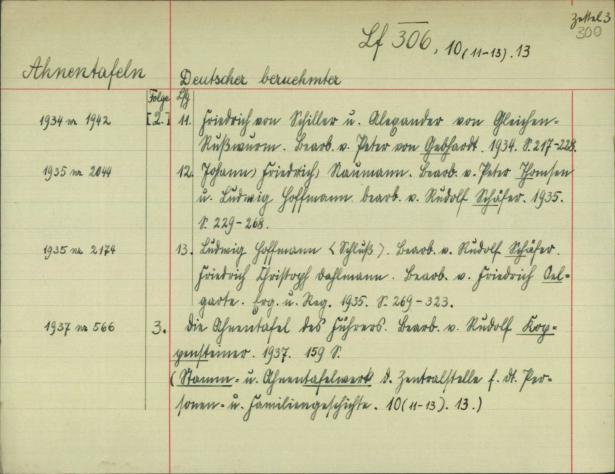 Zettel 3
300
Lf 306, 10(11-13).13
Ahnentafeln Deutscher beruehmter
Folge Lfg
1934 nr 1942 [2.] 11. Friedrich von Schiller u. Alexander von Gleichen-
Rußwurm. Bearb. v. Peter von Gebhardt. 1934. S. 217-228.
1935 nr 2044 12. Johann, Friedrich, Naumann. Bearb. v. Peter Thomsen
u. Ludwig Hoffmann bearb. v. Rudolf Schäfer. 1935.
S. 229-268.
1935 nr 2174 13. Ludwig Hoffmann <Schluß>. Bearb. v. Rudolf Schäfer.
Friedrich Christoph Dahlmann. Bearb. v. Friedrich Oel-
garte. Erg. u. Reg. 1935. S. 269-323.
1937 nr 566 3. Die Ahnentafel des Führers. Bearb. v. Rudolf Kop-
pensteiner. 1937. 159 S.
(Stamm- u. Ahnentafelwerk d. Zentralstelle f. dt. Per-
sonen- u. Familiengeschichte. 10(11-13). 13.)